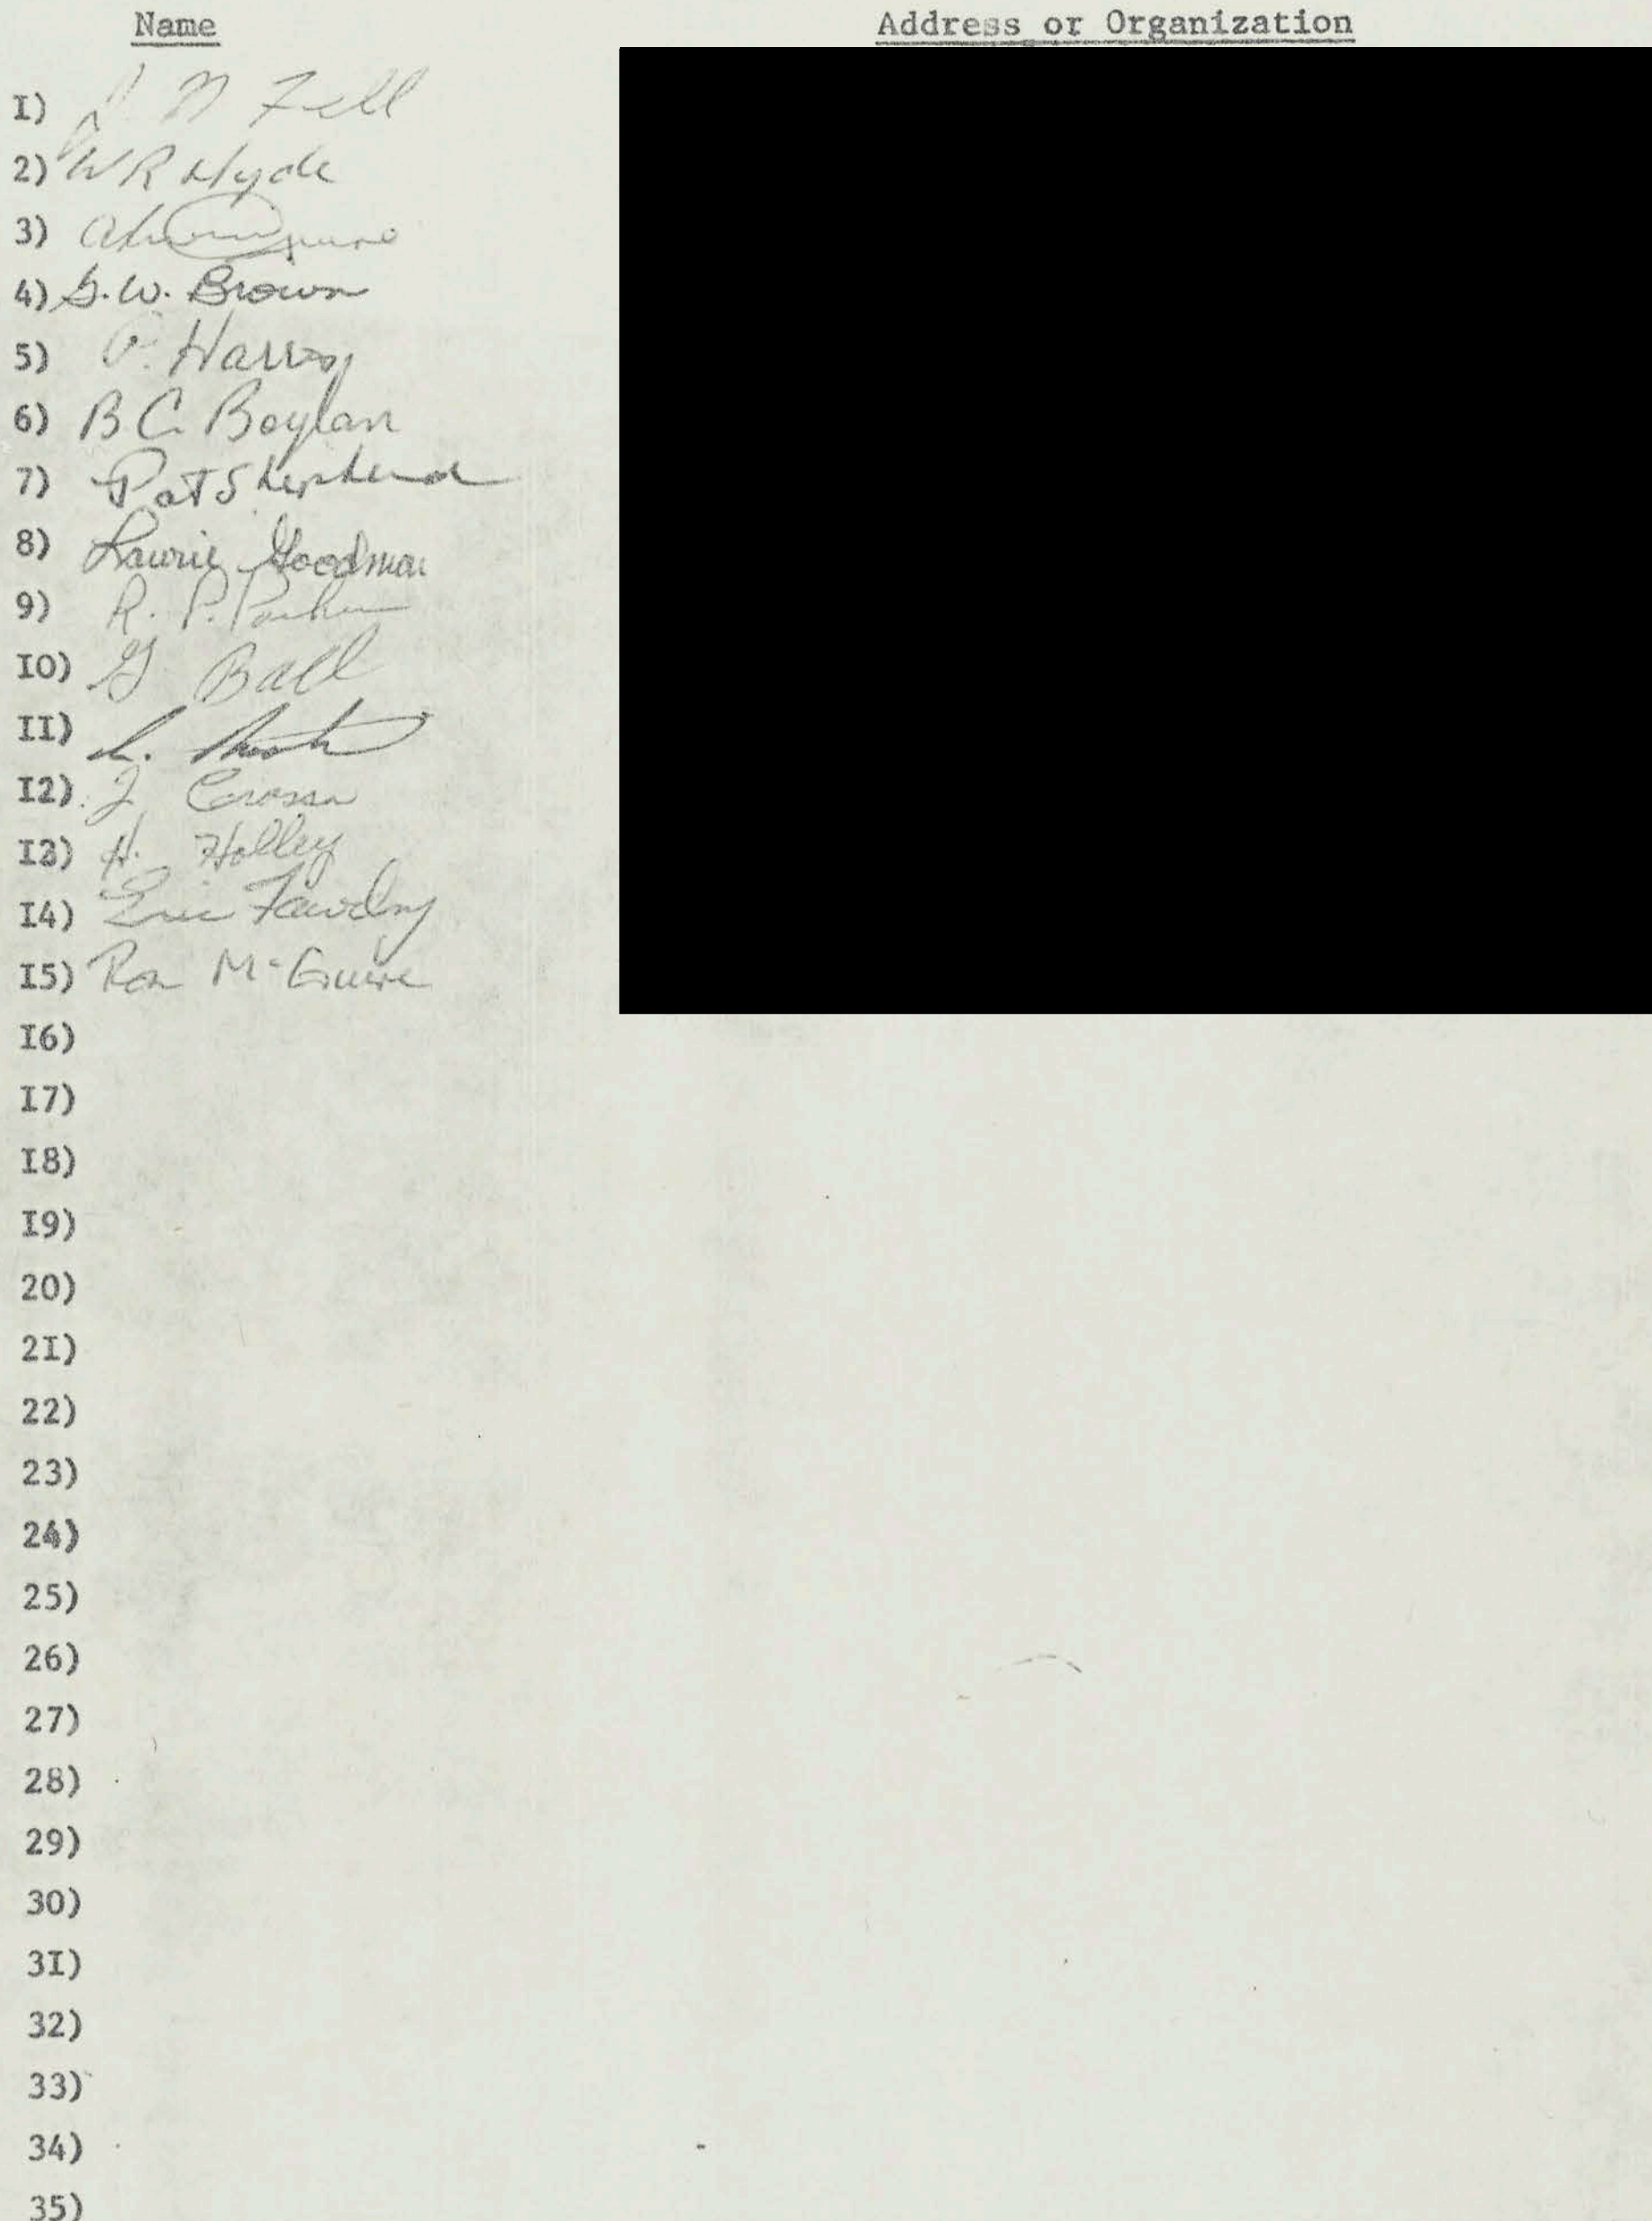 Name Address or Organization
I) N Fell
2) W R Hyde
3)
4) G.W. Brown
5) P. Harvey
6) B C Boylan
7) Pat Shepherd
8) Laurie Goodman
9) R. P. Parker
I0) G Ball
II) L.
I2) J
I3) H. Holley
I4) Eric Fawdry
I5) Ron McGuire
I6)
I7)
I8)
I9)
20)
2I)
22)
23)
24)
25)
26)
27)
28)
29)
30)
3I)
32)
33)
34)
35)